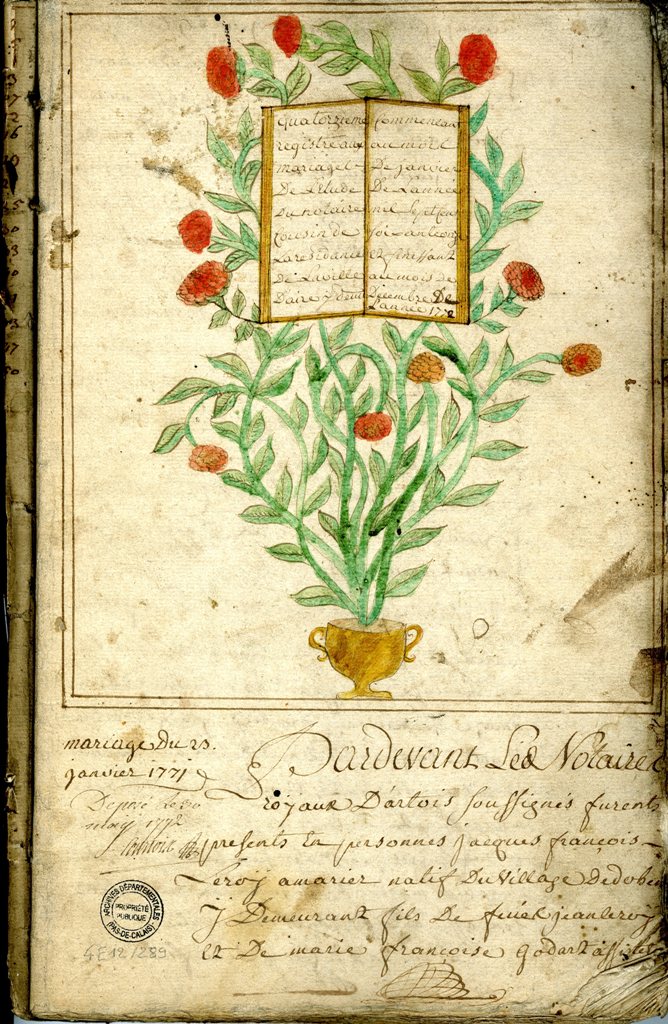 quatorzieme
registre aux
mariages
De Letude
Du notaire
Cousin de
La residance
De La ville
D'aire
Commencant
au mois
De janvier
De L'annee
mil sept cent
soixante onze
et finissant
au mois de
Decembre De
L'annee 1772
mariage Du 23.
janvier 1771
may 1772
Pardevant Les Notaires
royaux D'artois soussignés furent
presents En personnes jacques françois
Leroy amarier natif Du Village De
y Demeurant fils De jean leroy
et De marie françoise godart
ARCHIVES DÉPARTEMENTALES
PROPRIÉTÉ
PUBLIQUE
(PAS-DE-CALAIS)
4E127/289